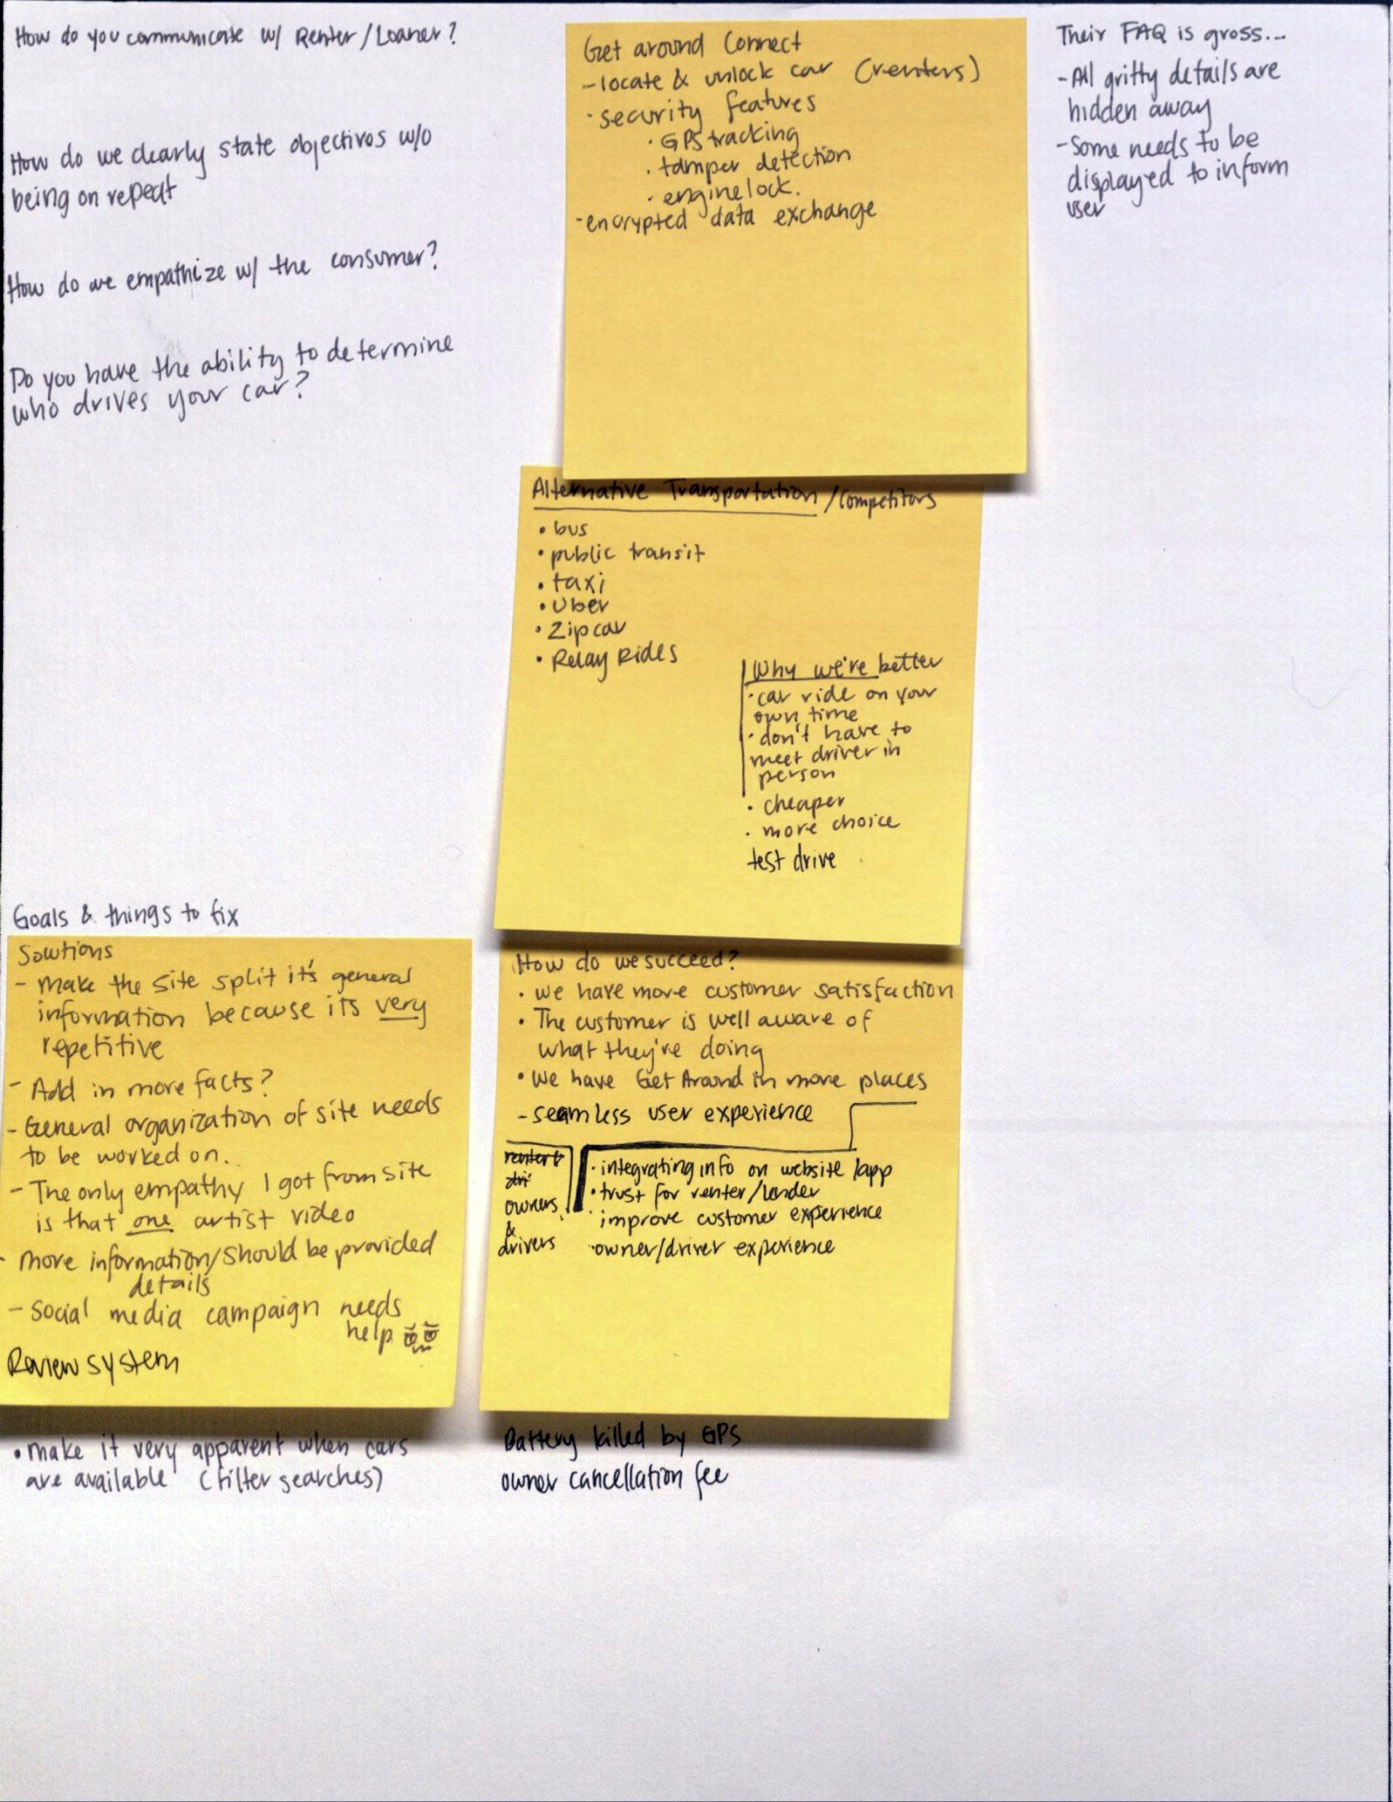 How do you communicate w/ Renter/Loaner?
How do we clearly state objectives w/o
being on repeat
How do we empathize w/ the consumer?
Do you have the ability to determine
who drives your car?
Get around Connect
- locate & unlock car (renters)
· security features
· GPS tracking
· tamper detection
· engine lock.
- encrypted data exchange
Their FAQ is gross...
- All gritty details are
hidden away
- Some needs to be
displayed to inform
user
Alternative Transportation /Competitors
• bus
• public transit
• taxi
• Uber
• Zipcar
• Relay Rides
Why we're better
· car ride on your
own time
· don't have to
meet driver in
person
· cheaper
· more choice
test drive
Goals & things to fix
Solutions
- Make the site split it's general
information because its very
repetitive
- Add in more facts?
- General organization of site needs
to be worked on.
- The only empathy I got from site
is that one artist video
- More information/should be provided
details
- Social media campaign needs
help
Review system
• make it very apparent when cars
are available (filter searches)
How do we succeed?
• we have more customer satisfaction
• The customer is well aware of
what they're doing
• We have Get Around in more places
- seamless user experience
renter &
dri
owners
&
drivers
· integrating info on website /app
· trust for renter/lender
· improve customer experience
· owner/driver experience
Battery killed by GPS
owner cancellation fee